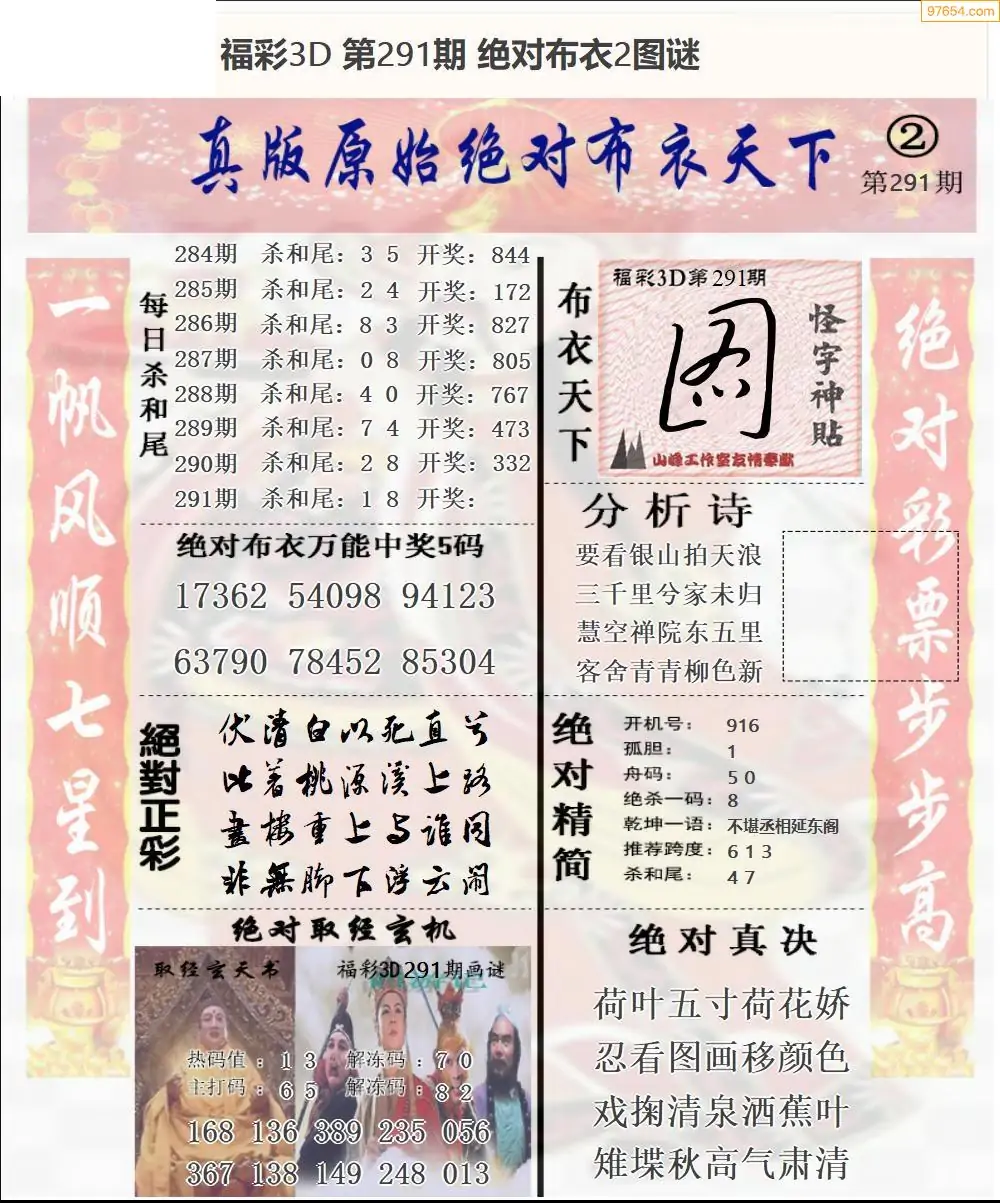 97654.com
福彩3D 第291期 绝对布衣2图谜
真版原始绝对布衣天下
②
第291期
一帆风顺七星到
每日杀和尾
284期 杀和尾：3 5 开奖：844
285期 杀和尾：2 4 开奖：172
286期 杀和尾：8 3 开奖：827
287期 杀和尾：0 8 开奖：805
288期 杀和尾：4 0 开奖：767
289期 杀和尾：7 4 开奖：473
290期 杀和尾：2 8 开奖：332
291期 杀和尾：1 8 开奖：
绝对布衣万能中奖5码
17362 54098 94123
63790 78452 85304
絕對正彩
伏清白以死直兮
比著桃源溪上路
畫樓重上与谁同
非無脚下浮云闹
绝对取经玄机
取经玄天书
福彩3D291期画谜
热码值：1 3 解冻码：7 0
主打码：6 5 解冻码：8 2
168 136 389 235 056
367 138 149 248 013
布衣天下
福彩3D第291期
图
怪字神贴
山峰工作室友情奉献
分析诗
要看银山拍天浪
三千里兮家未归
慧空禅院东五里
客舍青青柳色新
绝对精简
开机号：916
孤胆：1
舟码：5 0
绝杀一码：8
乾坤一语：不堪丞相延东阁
推荐跨度：6 1 3
杀和尾：4 7
绝对真决
荷叶五寸荷花娇
忍看图画移颜色
戏掬清泉洒蕉叶
雉堞秋高气肃清
绝对彩票步步高